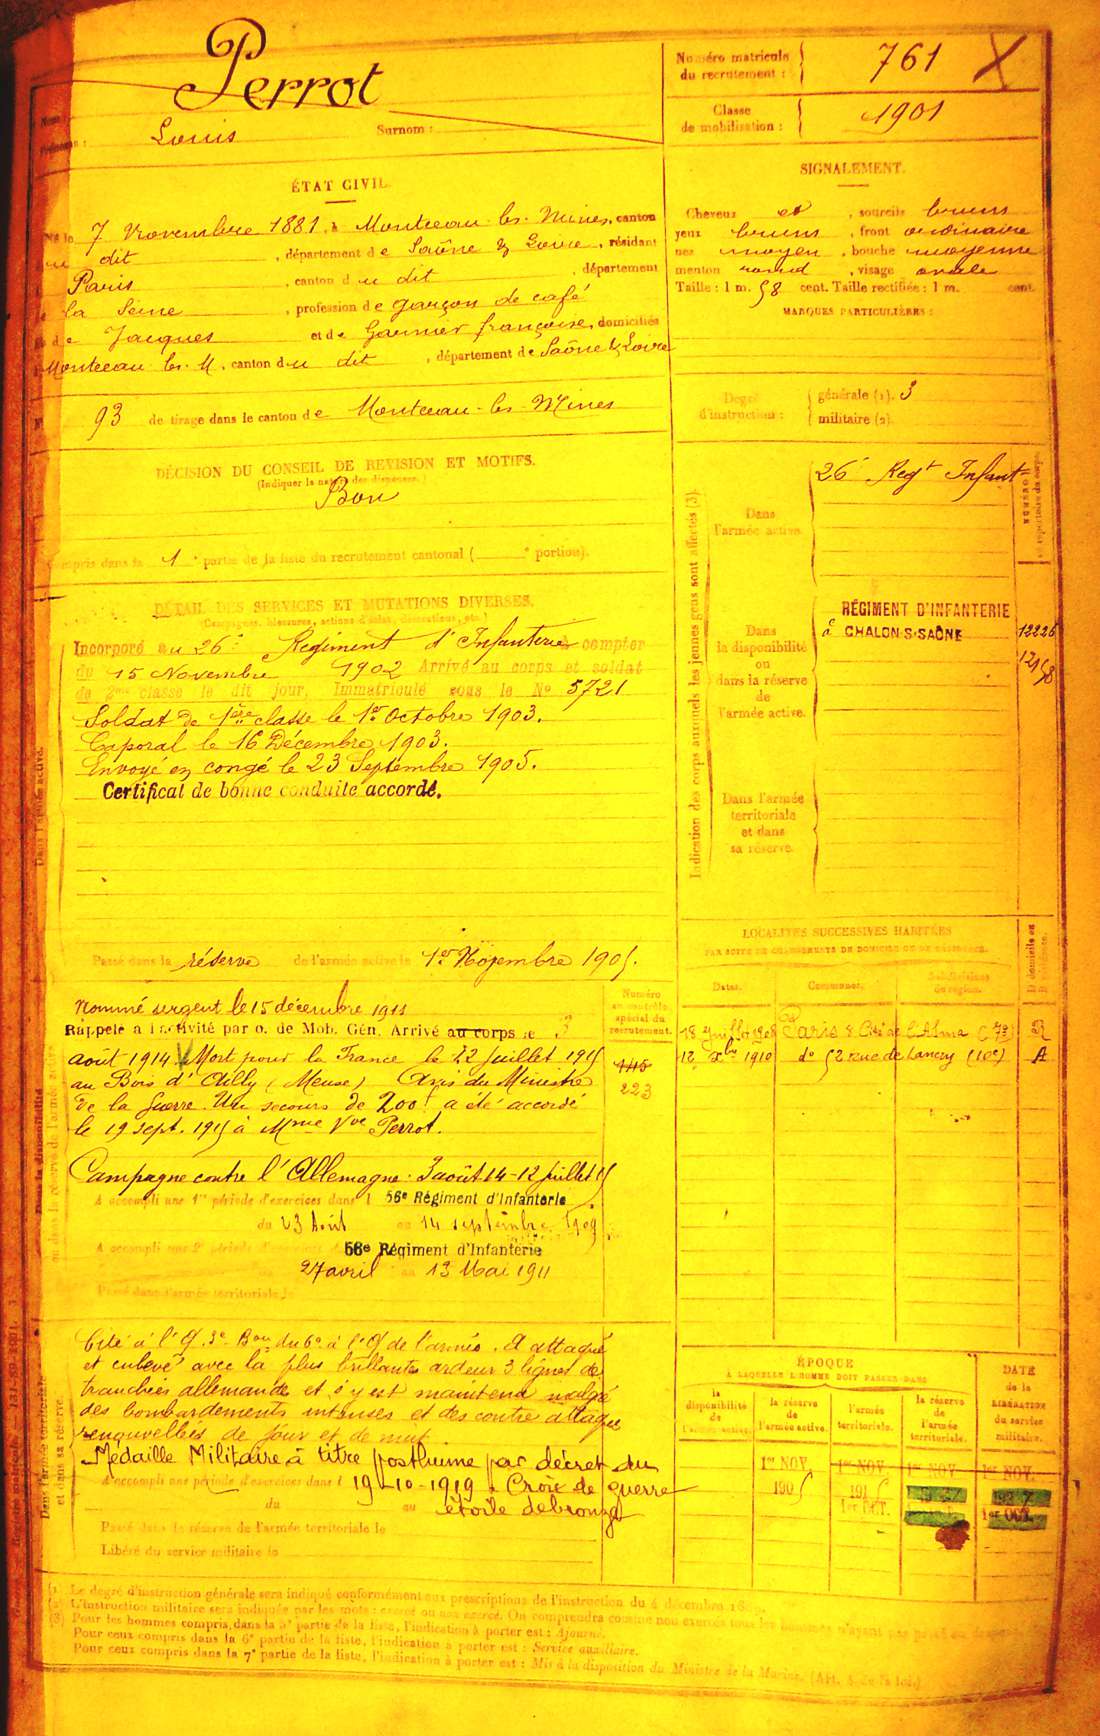 Perrot
Nom :
Prénoms : Louis Surnom :
Numéro matricule
du recrutement : 761 X
Classe
de mobilisation : 1901
ÉTAT CIVIL.
Né le 7 Novembre 1881, à Montceau-les-Mines, canton
du dit, département de Saône & Loire, résidant
à Paris, canton du dit, département
de la Seine, profession de garçon de café
fils de Jacques et de Garnier françoise, domiciliés
Montceau-les-M., canton du dit, département de Saône & Loire
N° 93 de tirage dans le canton de Montceau-les-Mines
SIGNALEMENT.
Cheveux et, sourcils bruns
yeux bruns, front ordinaire
nez moyen, bouche moyenne
menton rond, visage ovale
Taille : 1 m. 58 cent. Taille rectifiée : 1 m. cent.
MARQUES PARTICULIÈRES :
Degré
d'instruction :
générale (1). 3
militaire (2).
DÉCISION DU CONSEIL DE REVISION ET MOTIFS.
(Indiquer la nature des dispenses.)
Bon
Compris dans la 1e partie de la liste du recrutement cantonal ( e portion).
DÉTAIL DES SERVICES ET MUTATIONS DIVERSES.
(Campagnes, blessures, actions d'éclat, décorations, etc.)
Incorporé au 26e Régiment d'Infanterie à compter
du 15 Novembre 1902 Arrivé au corps et soldat
de 2me classe le dit jour, Immatriculé sous le No 5721
Soldat de 1ère classe le 1er Octobre 1903.
Caporal le 16 Décembre 1903.
Envoyé en congé le 23 Septembre 1905.
Certificat de bonne conduite accordé.
Dans l'armée active.
Passé dans la réserve de l'armée active le 1er Novembre 1905.
Indication des corps auxquels les jeunes gens sont affectés (3).
Dans
l'armée active.
26e Regt Infant
NUMÉRO
au répertoire du corps.
Dans
la disponibilité
ou
dans la réserve
de
l'armée active.
RÉGIMENT D'INFANTERIE
à CHALON-S-SAÔNE
12226
12158
Dans l'armée
territoriale
et dans
sa réserve.
LOCALITÉS SUCCESSIVES HABITÉES
PAR SUITE DE CHANGEMENTS DE DOMICILE OU DE RÉSIDENCE.
Dates. Communes. Subdivisions
de région.
D domicile ou
R résidence.
18 juillet 1908 Paris 8 Cité de l'Alma (7e) R
12 Xbre 1910 do 52 rue de Lancry (10e) A
Numéro
au contrôle
spécial du
recrutement.
145
223
Nommé sergent le 15 décembre 1911
Rappelé à l'activité par o. de Mob. Gén. Arrivé au corps le 3
août 1914 Mort pour la France le 12 Juillet 1915
au Bois d'Ailly (Meuse) Avis du Ministre
de la Guerre. Un secours de 200f a été accordé
le 19 sept. 1915 à Mme Vve Perrot.
Campagne contre l'Allemagne : 3 août 14 - 12 Juillet 15
A accompli une 1re période d'exercices dans l 56e Régiment d'Infanterie
du 23 Août au 14 septembre 1909
A accompli une 2e période d'exercices d 56e Régiment d'Infanterie
27 avril au 13 Mai 1911
Passé dans l'armée territoriale le
Cité à l'O. 3e Bon du 56e à l'O de l'armée. A attaqué
et enlevé avec la plus brillante ardeur 3 lignes de
tranchées allemandes et s'y est maintenu malgré
des bombardements intenses et des contre attaques
renouvellées de jour et de nuit
Médaille Militaire à titre posthume par décret du
A accompli une période d'exercices dans l 19-10-1919. Croix de guerre
du au étoile de bronze
Passé dans la réserve de l'armée territoriale le
Libéré du service militaire le
Dans l'armée territoriale
et dans sa réserve.
ÉPOQUE
À LAQUELLE L'HOMME DOIT PASSER DANS
DATE
de la
LIBÉRATION
du service
militaire.
la
disponibilité
de
l'armée active.
la réserve
de
l'armée active.
l'armée
territoriale.
la réserve
de
l'armée
territoriale.
1er NOV. 1er NOV. 1er NOV. 1er NOV.
1905 1915
1er OCT. 1er OCT.
(1) Le degré d'instruction générale sera indiqué conformément aux prescriptions de l'instruction du 4 décembre
(2) L'instruction militaire sera indiquée par les mots : exercé ou non exercé. On comprendra comme non exercés tous les hommes n'ayant pas passé
(3) Pour les hommes compris dans la 5e partie de la liste, l'indication à porter est : Ajourné.
Pour ceux compris dans la 6e partie de la liste, l'indication à porter est : Service auxiliaire.
Pour ceux compris dans la 7e partie de la liste, l'indication à porter est : Mis à la disposition du Ministre de la Marine.